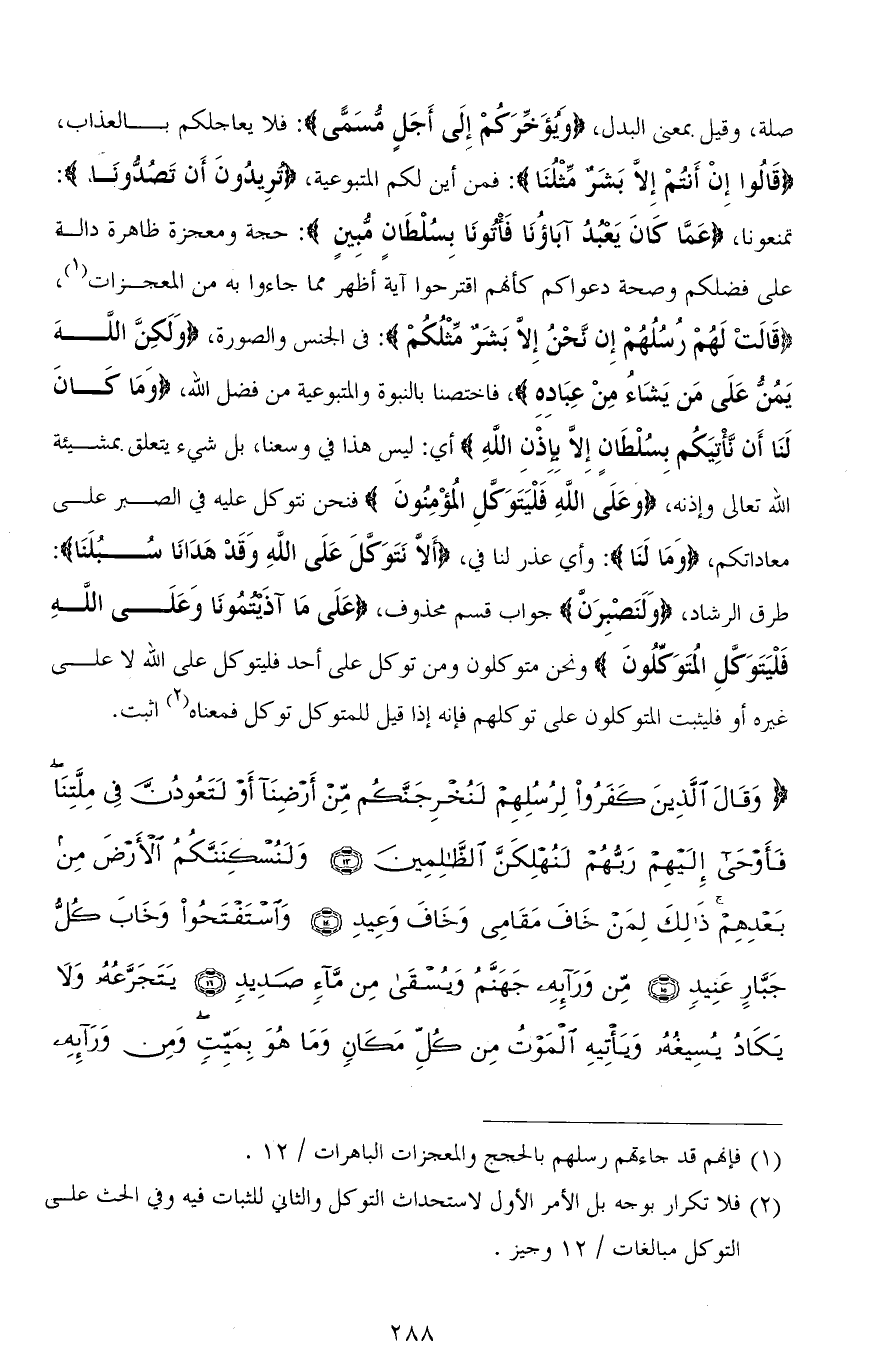 صلة، وقيل بمعنى البدل، ﴿وَيُؤَخِّرَكُمْ إِلَى أَجَلٍ مُّسَمًّى﴾: فلا يعاجلكم بالعذاب،
﴿قَالُوا إِنْ أَنتُمْ إِلاَّ بَشَرٌ مِّثْلُنَا﴾: فمن أين لكم المتبوعية، ﴿تُرِيدُونَ أَن تَصُدُّونَا﴾:
تمنعونا، ﴿عَمَّا كَانَ يَعْبُدُ آبَاؤُنَا فَأْتُونَا بِسُلْطَانٍ مُّبِينٍ﴾: حجة ومعجزة ظاهرة دالة
على فضلكم وصحة دعواكم كأنهم اقترحوا آية أظهر مما جاءوا به من المعجزات(١)،
﴿قَالَتْ لَهُمْ رُسُلُهُمْ إِن نَّحْنُ إِلاَّ بَشَرٌ مِّثْلُكُمْ﴾: فى الجنس والصورة، ﴿وَلَكِنَّ اللَّهَ
يَمُنُّ عَلَى مَن يَشَاءُ مِنْ عِبَادِهِ﴾، فاختصنا بالنبوة والمتبوعية من فضل الله، ﴿وَمَا كَانَ
لَنَا أَن نَّأْتِيَكُم بِسُلْطَانٍ إِلاَّ بِإِذْنِ اللَّهِ﴾ أي: ليس هذا في وسعنا، بل شيء يتعلق بمشيئة
الله تعالى وإذنه، ﴿وَعَلَى اللَّهِ فَلْيَتَوَكَّلِ الْمُؤْمِنُونَ﴾ فنحن نتوكل عليه في الصبر على
معاداتكم، ﴿وَمَا لَنَا﴾: وأي عذر لنا في، ﴿أَلاَّ نَتَوَكَّلَ عَلَى اللَّهِ وَقَدْ هَدَانَا سُبُلَنَا﴾:
طرق الرشاد، ﴿وَلَنَصْبِرَنَّ﴾ جواب قسم محذوف، ﴿عَلَى مَا آذَيْتُمُونَا وَعَلَى اللَّهِ
فَلْيَتَوَكَّلِ الْمُتَوَكِّلُونَ﴾ ونحن متوكلون ومن توكل على أحد فليتوكل على الله لا على
غيره أو فليثبت المتوكلون على توكلهم فإنه إذا قيل للمتوكل توكل فمعناه(٢) اثبت.
﴿وَقَالَ ٱلَّذِينَ كَفَرُواْ لِرُسُلِهِمْ لَنُخْرِجَنَّكُم مِّنْ أَرْضِنَآ أَوْ لَتَعُودُنَّ فِى مِلَّتِنَاۖ
فَأَوْحَىٰٓ إِلَيْهِمْ رَبُّهُمْ لَنُهْلِكَنَّ ٱلظَّٰلِمِينَ ﴿١٣﴾ وَلَنُسْكِنَنَّكُمُ ٱلْأَرْضَ مِنۢ
بَعْدِهِمْۚ ذَٰلِكَ لِمَنْ خَافَ مَقَامِى وَخَافَ وَعِيدِ ﴿١٤﴾ وَٱسْتَفْتَحُواْ وَخَابَ كُلُّ
جَبَّارٍ عَنِيدٍ ﴿١٥﴾ مِّن وَرَآئِهِۦ جَهَنَّمُ وَيُسْقَىٰ مِن مَّآءٍ صَدِيدٍ ﴿١٦﴾ يَتَجَرَّعُهُۥ وَلَا
يَكَادُ يُسِيغُهُۥ وَيَأْتِيهِ ٱلْمَوْتُ مِن كُلِّ مَكَانٍ وَمَا هُوَ بِمَيِّتٍۖ وَمِن وَرَآئِهِۦ
(١) فإنهم قد جاءتهم رسلهم بالحجج والمعجزات الباهرات / ١٢ .
(٢) فلا تكرار بوجه بل الأمر الأول لاستحداث التوكل والثاني للثبات فيه وفي الحث على
التوكل مبالغات / ١٢ وجيز .
٢٨٨